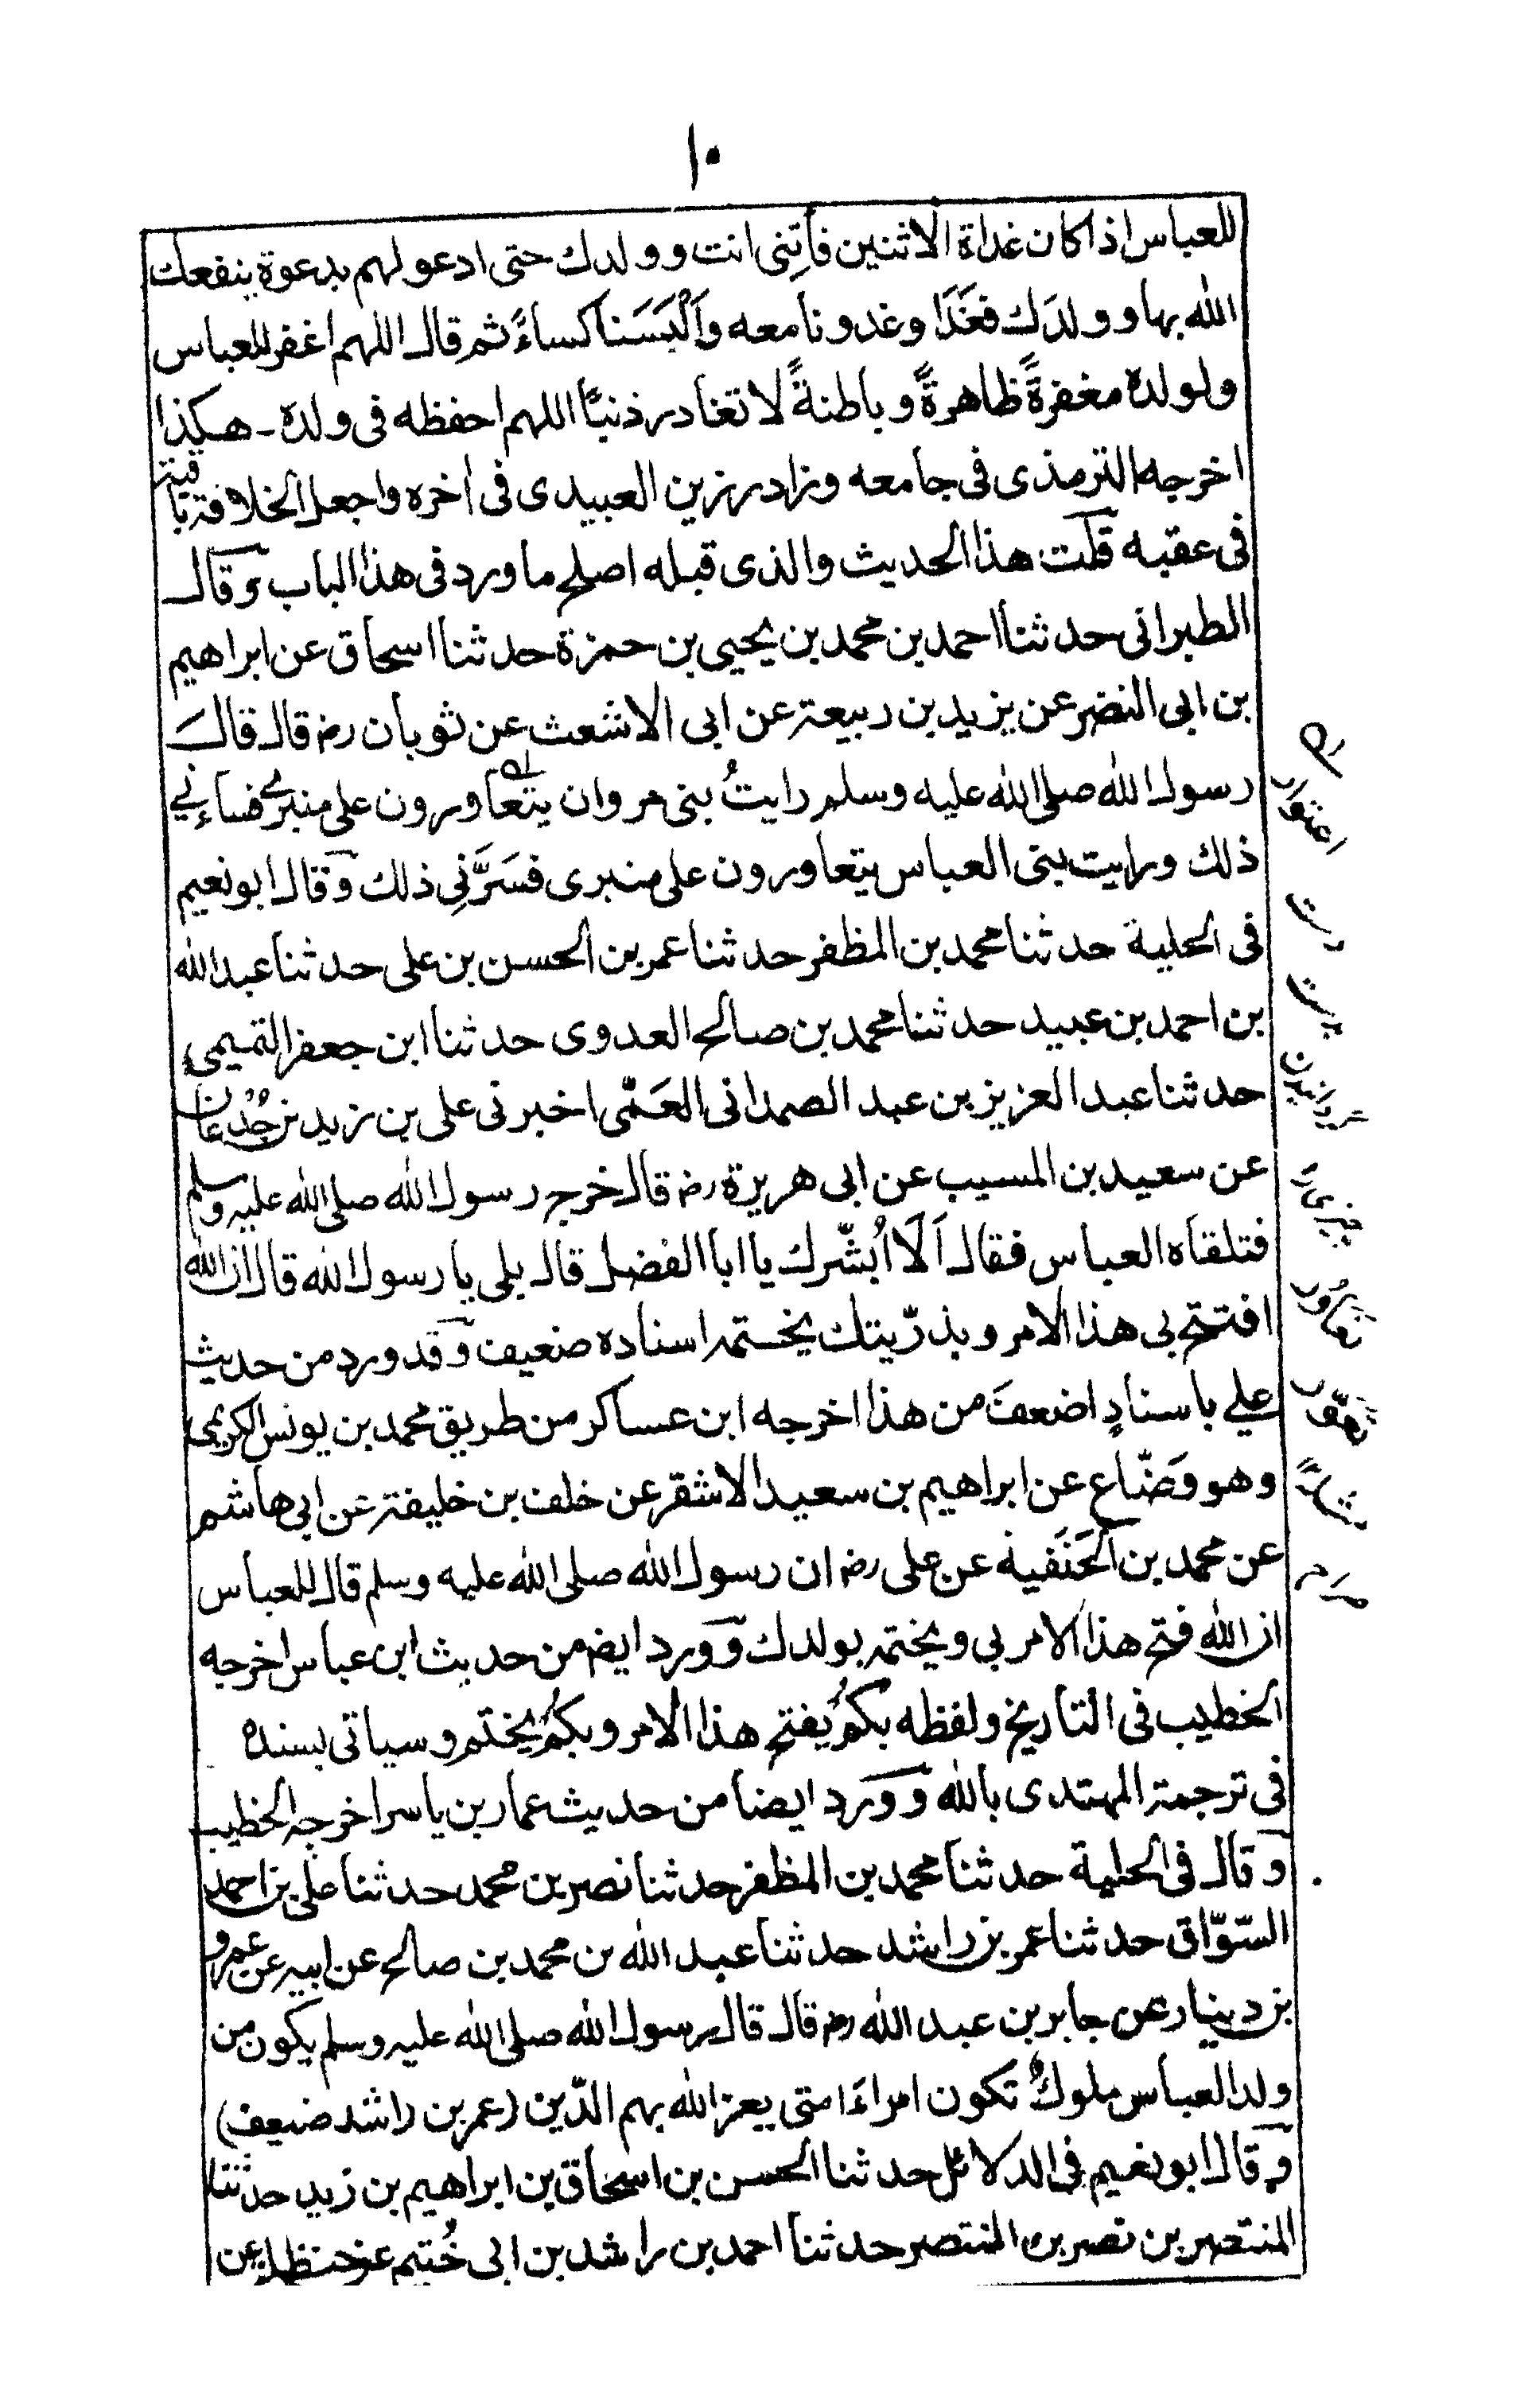 ١٠
للعباس اذا كان غداة الاثنين فأتِنى انت وولدك حتى ادعو لهم بدعوة ينفعك
الله بها وولدَك فغَدَا وغدونا معه وَاَلْبَسَنا كساءً ثم قال اللهم اغفر للعباس
ولولده مغفرةً ظاهرةً وباطنةً لا تغادر ذنبًا اللهم احفظه فى ولده ـ هكذا
اخرجه الترمذى فى جامعه وزاد رزين العبيدى فى اخره واجعل الخلافة باقية
فى عقبه قلت هذا الحديث والذى قبله اصلح ما ورد فى هذا الباب وقال
الطبرانى حدثنا احمد بن محمد بن يحيى بن حمزة حدثنا اسحاق عن ابراهيم
بن ابى النضر عن يزيد بن ربيعة عن ابى الاشعث عن ثوبان رض قال قال
رسول الله صلى الله عليه وسلم رايتُ بنى مروان يتعاورون على منبرى فساءنى
ذلك ورايت بنى العباس يتعاورون على منبرى فسَرَّنِى ذلك وقال ابو نعيم
فى الحلية حدثنا محمد بن المظفر حدثنا عمر بن الحسن بن على حدثنا عبد الله
بن احمد بن عبيد حدثنا محمد بن صالح العدوى حدثنا ابن جعفر التميمى
حدثنا عبد العزيز بن عبد الصمدانى العَمّى اخبرنى على بن زيد بن جُدعان
عن سعيد بن المسيب عن ابى هريرة رض قال خرج رسول الله صلى الله عليه وسلم
فتلقاه العباس فقال اَلَا اُبشّرك يا ابا الفضل قال بلى يا رسول الله قال ان الله
افتتح بى هذا الامر وبذرّيتك يختمه اسناده ضعيف وقد ورد من حديث
على باسنادٍ اضعفَ من هذا اخرجه ابن عساكر من طريق محمد بن يونس الكريمى
وهو وَضّاع عن ابراهيم بن سعيد الاشقر عن خلف بن خليفة عن ابى هاشم
عن محمد بن الحَنَفية عن على رض ان رسول الله صلى الله عليه وسلم قال للعباس
ان الله فتح هذا الامر بى ويختمه بولدك وورد ايض من حديث ابن عباس اخرجه
الخطيب فى التاريخ ولفظه بكم يفتح هذا الامر وبكم يختم وسياتى بسنده
فى ترجمة المهتدى بالله وورد ايضا من حديث عمار بن ياسر اخرجه الخطيب
وقال فى الحلية حدثنا محمد بن المظفر حدثنا نصر بن محمد حدثنا على بن احمد
السّوّاق حدثنا عمر بن راشد حدثنا عبد الله بن محمد بن صالح عن ابيه عن عمرو
بن دينار عن جابر بن عبد الله رض قال قال رسول الله صلى الله عليه وسلم يكون من
ولد العباس ملوكٌ تكون امراءَ امتى يعز الله بهم الدّين (عمر بن راشد ضعيف)
وقال ابو نعيم فى الدلائل حدثنا الحسن بن اسحاق بن ابراهيم بن زيد حدثنا
المنتصر بن نصر بن المنتصر حدثنا احمد بن راشد بن ابى خُثيم عن حنظلة عن
اعتور
دست
بدست
تعاور